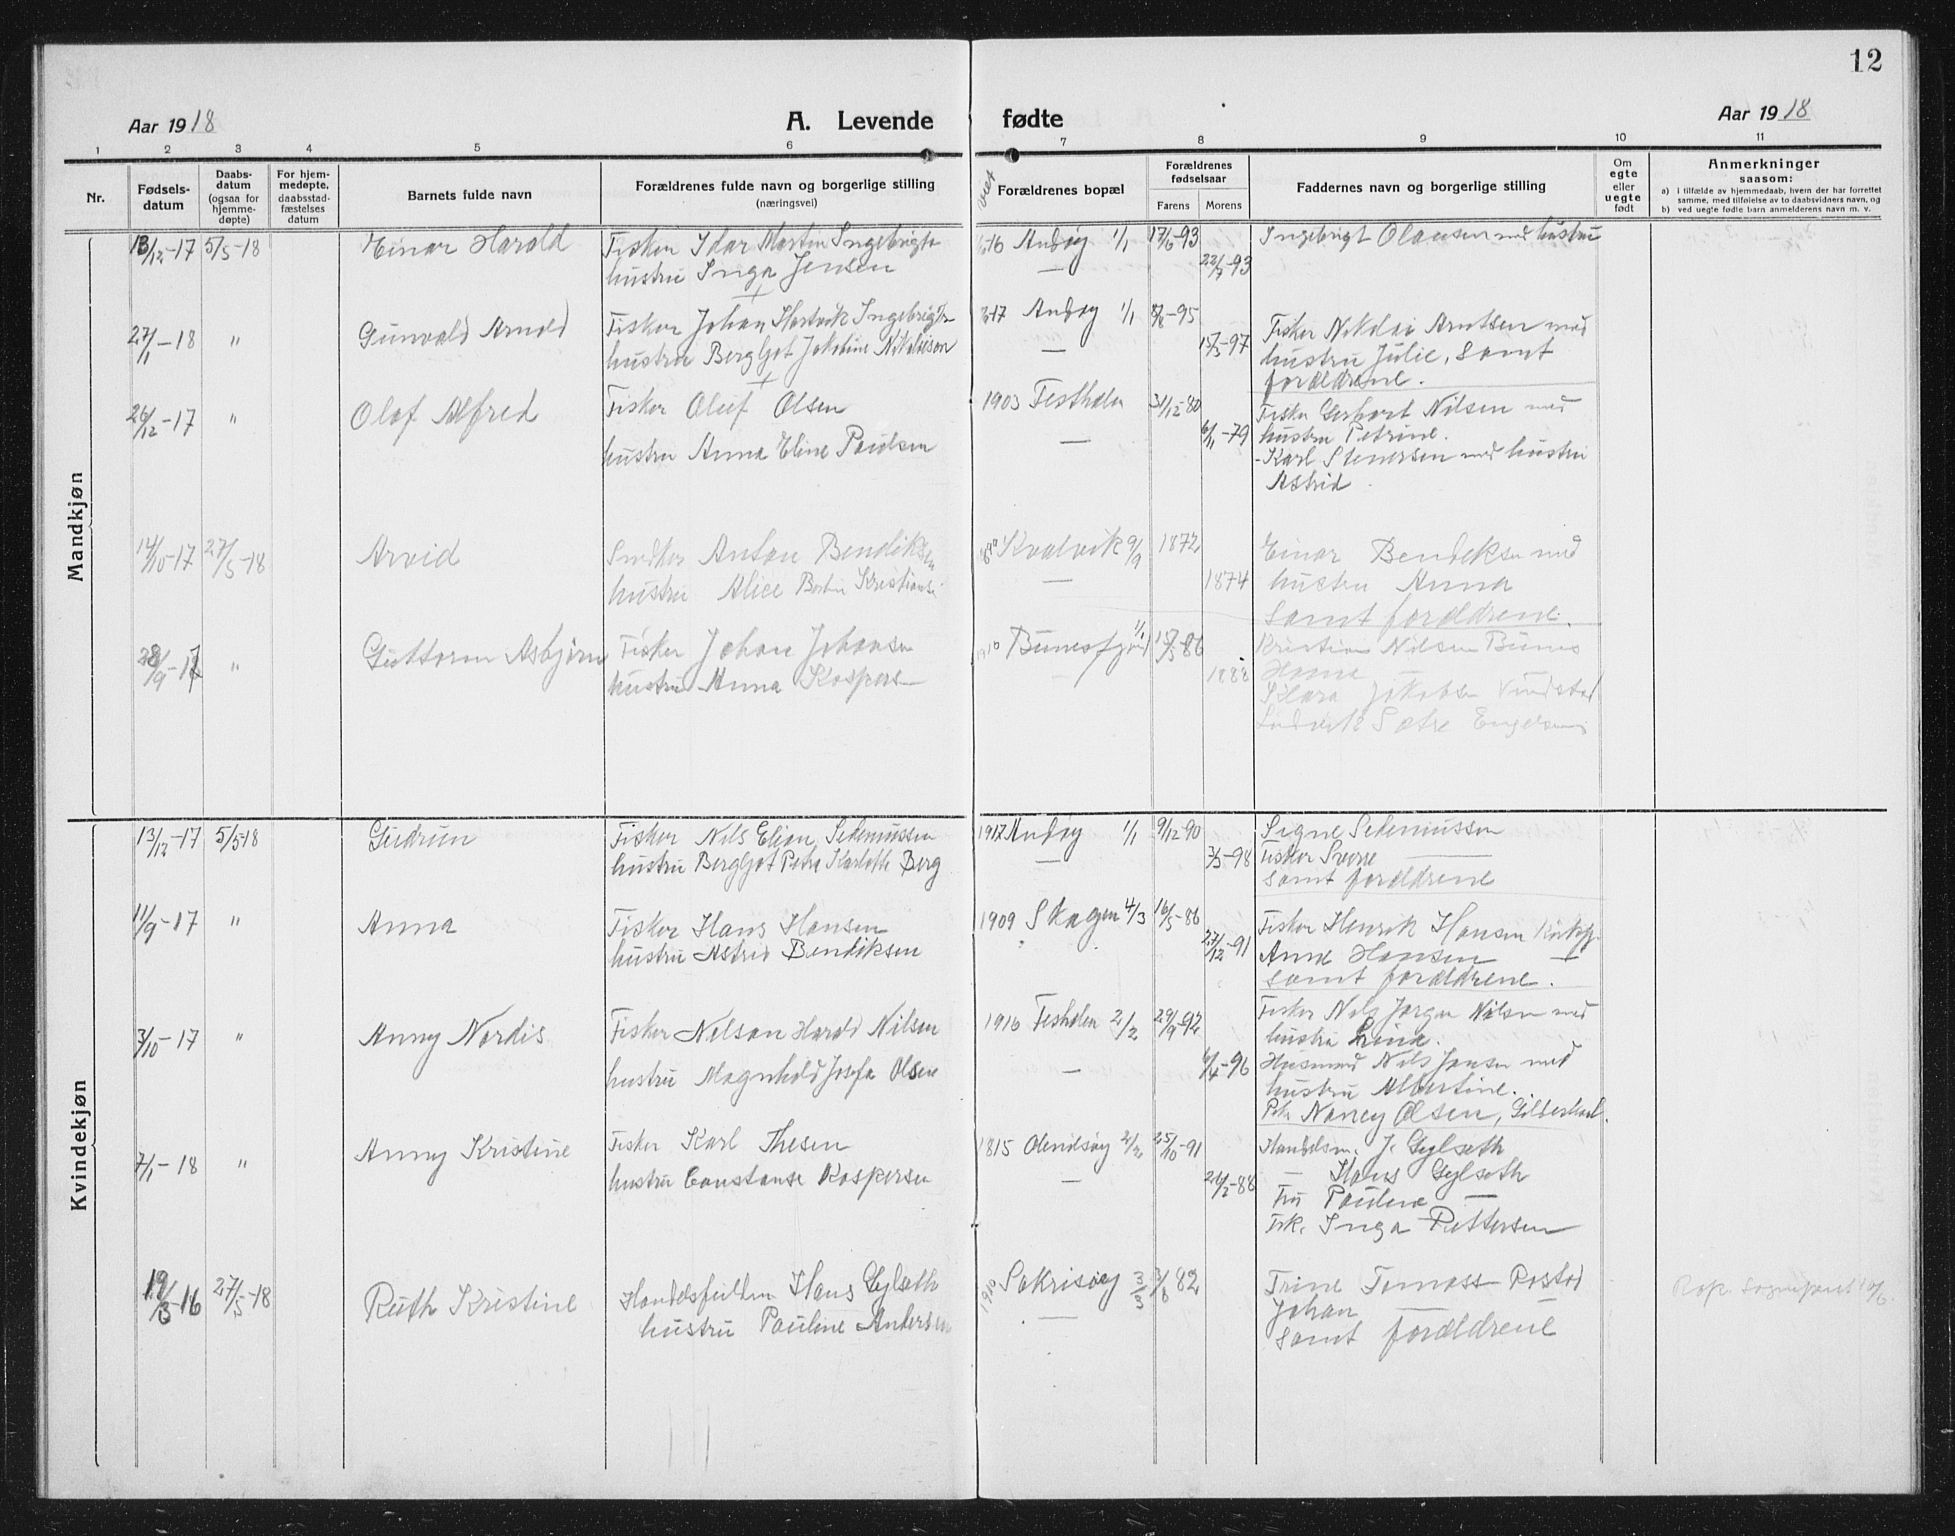 12
Aar 1918
A. Levende fødte
Aar 1918
1 2 3 4 5 6 7 8 9 10 11
Nr.
Fødsels-
datum
Daabs-
datum
(ogsaa for
hjemme-
døpte)
For hjem-
medøpte,
daabsstad-
fæstelses
datum
Barnets fulde navn
Forældrenes fulde navn og borgerlige stilling
(næringsvei)
viet
Forældrenes bopæl
Forældrenes
fødselsaar
Farens Morens
Faddernes navn og borgerlige stilling
Om
egte
eller
uegte
født
Anmerkninger
saasom:
a) i tilfælde av hjemmedaab, hvem der har forrettet
samme, med tilføielse av to daabsvidners navn, og
b) ved uegte fødte barn anmelderens navn m. v.
Mandkjøn
13/12-17 5/5-18 Einar Harald Fisker Idar Martin Ingebrigts Andøy 1/1 17/6-93 Ingebrigt Olausen med hustru
hustru Inga Jensen — 22/7-93
27/1-18 " Gunvald Arnold Fisker Johan Hartvik Ingebrigts Andøy 1/1 -95 Fisker Nikolai Arntsen med
hustru Bergljot Jakobine Nikolaisen — 15/3-97 hustru Julie, samt
forældrene.
26/12-17 " Olaf Alfred Fisker Oluf Olsen 1903 Festhelen 31/12-80 Fisker Gerhart Nilsen med
hustru Anna Eline Paulsen — 6/11-79 hustru Petrine.
- Karl Stenersen med hustru
Astrid.
14/10-17 27/5-18 Arvid Anton Bendiksen Kvalvik 9/9 1872 Einar Bendiksen med
hustru Alice Kristians — 1874 hustru Anna
samt forældrene.
28/9-17 " Guttorm Asbjørn Fisker Johan Johansen 1910 Bunesfjord 1/1 15/5-86 Kristian Nilsen Bunes
hustru Anna Kaspers — 1888 Hanna —
Klara Jakobsen Vindstad
Ludvik Sætre
Kvindekjøn
13/12-17 5/5-18 Gudrun Fisker Nils Elion Sedeniussen 1917 Andøy 1/1 9/12-90 Signe Sedeniussen
hustru Bergljot Petra Karlotte Berg — 3/5-98 Fisker Sverre —
samt forældrene
11/9-17 " Anna Fisker Hans Hansen 1909 Skagen 4/3 16/5-86 Fisker Henrik Hansen
hustru Astrid Bendiksen 27/12-91 Anna Hansen —
samt forældrene.
3/10-17 " Anny Nordis Fisker Nelson Harald Nilsen 1916 Festhelen 2/2 29/9-92 Fisker Nils Jørgen Nilsen med
hustru Magnhild Josefa Olsen — 6/4-96 hustru Lina.
Husmand Nils Jansen med
hustru Albertine.
Pike Nancy Olsen,
7/1-18 " Anny Kristine Fisker Karl Thesen 1815 Olenilsøy 2/2 25/10-91 Handelsm. J. Gylseth
hustru Constanse Kaspersen — 24/2-88 — Hans Gylseth
Fru Pauline —
Frk. Inga Pettersen
19/3-16 27/5-18 Ruth Kristine Handelsfuldm Hans Gylseth 1910 Sakrisøy 3/3 3/8 82 Trine Tomass Rostad
hustru Pauline Andersen — Johan —
samt forældrene